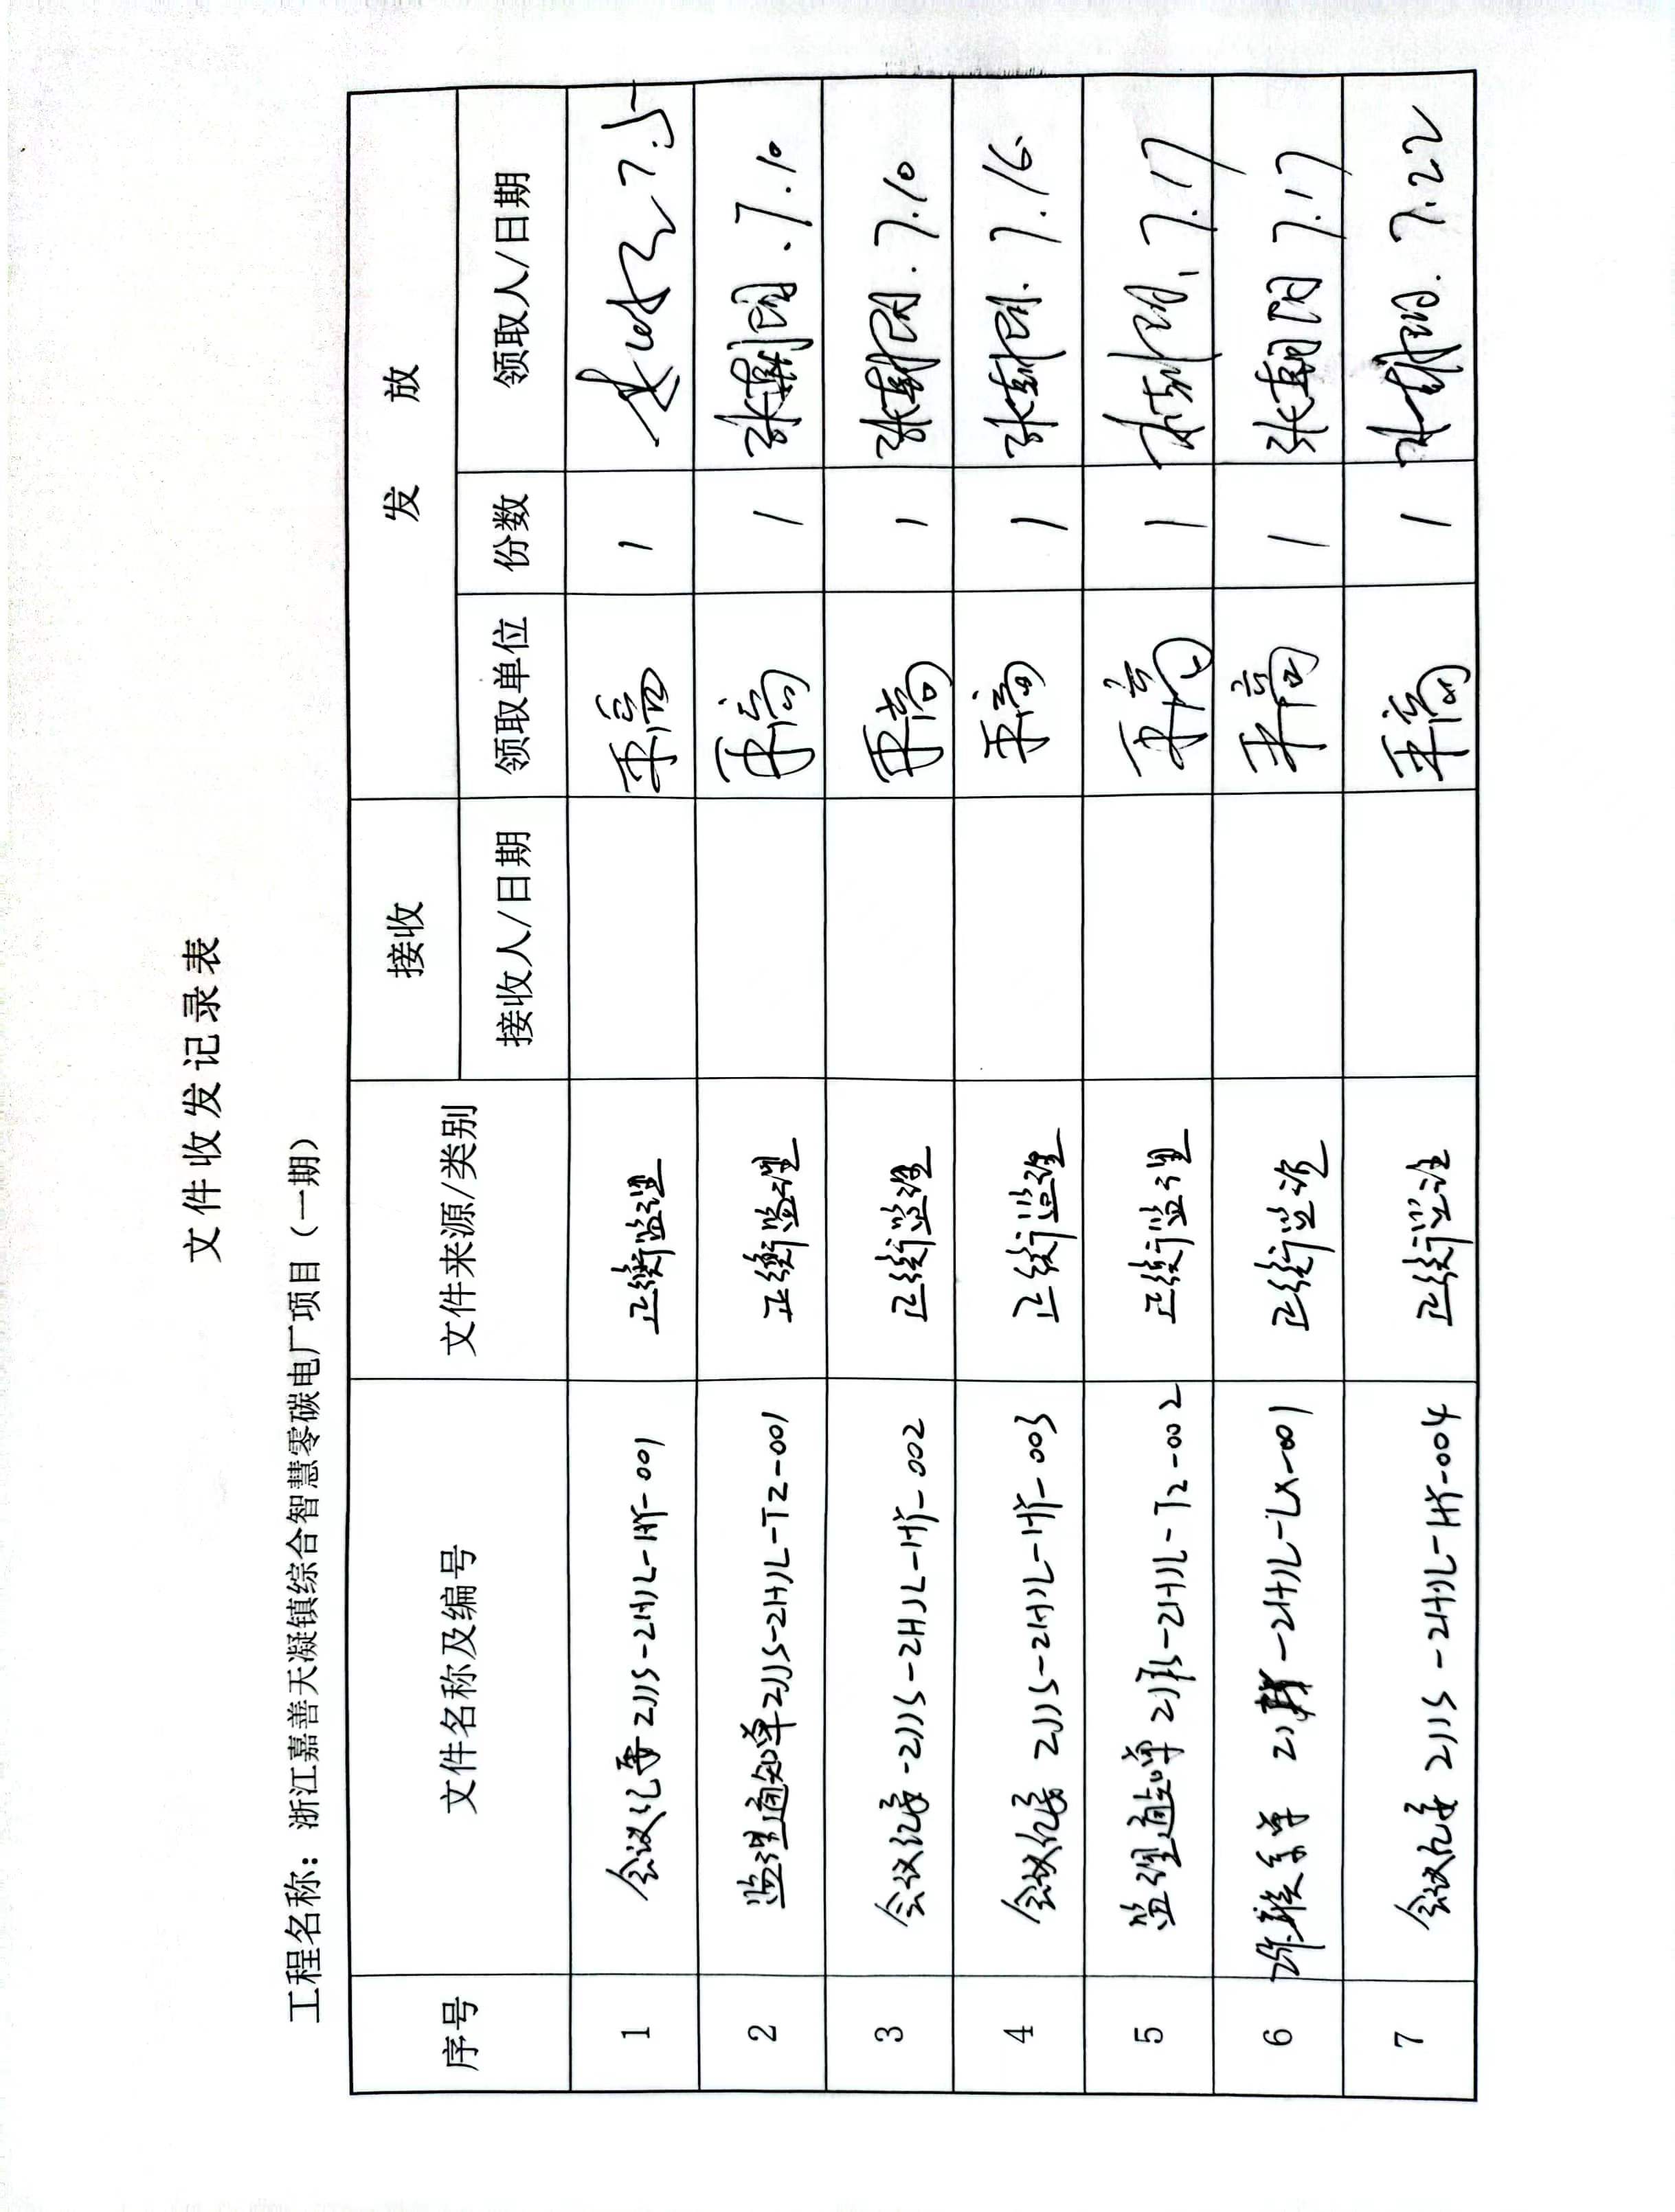 文件收发记录表
工程名称：浙江嘉善天凝镇综合智慧零碳电厂项目（一期）
序号 文件名称及编号 文件来源/类别 接收 发 放
接收人/日期 领取单位 份数 领取人/日期
1 会议纪要 ZJJS-ZHJL-HY-001 正衡监理 平高 1 7.5
2 监理通知单 ZJJS-ZHJL-TZ-001 正衡监理 平高 1 张朝阳.7.10
3 会议纪要-ZJJS-ZHJL-HY-002 正衡监理 平高 1 张朝阳.7.10
4 会议纪要 ZJJS-ZHJL-HY-003 正衡监理 平高 1 张朝阳.7.16.
5 监理通知单 ZJJS-ZHJL-TZ-002 正衡监理 平高 1 张朝阳,7.17
6 联系单 -ZHJL-LX-001 正衡监理 平高 1 张朝阳 7.17
7 会议纪要 ZJJS-ZHJL-HY-004 正衡监理 平高 1 张朝阳.7.22